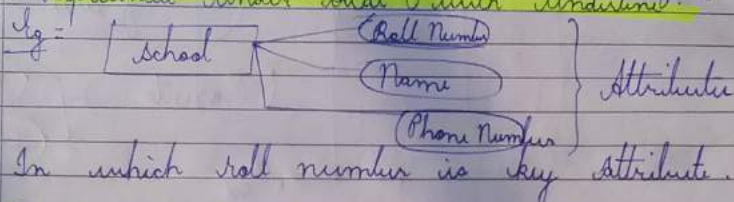 under with underline.
Eg =
School
Roll Number
Name
Phone Number
Attribute
In which roll number is key attribute.